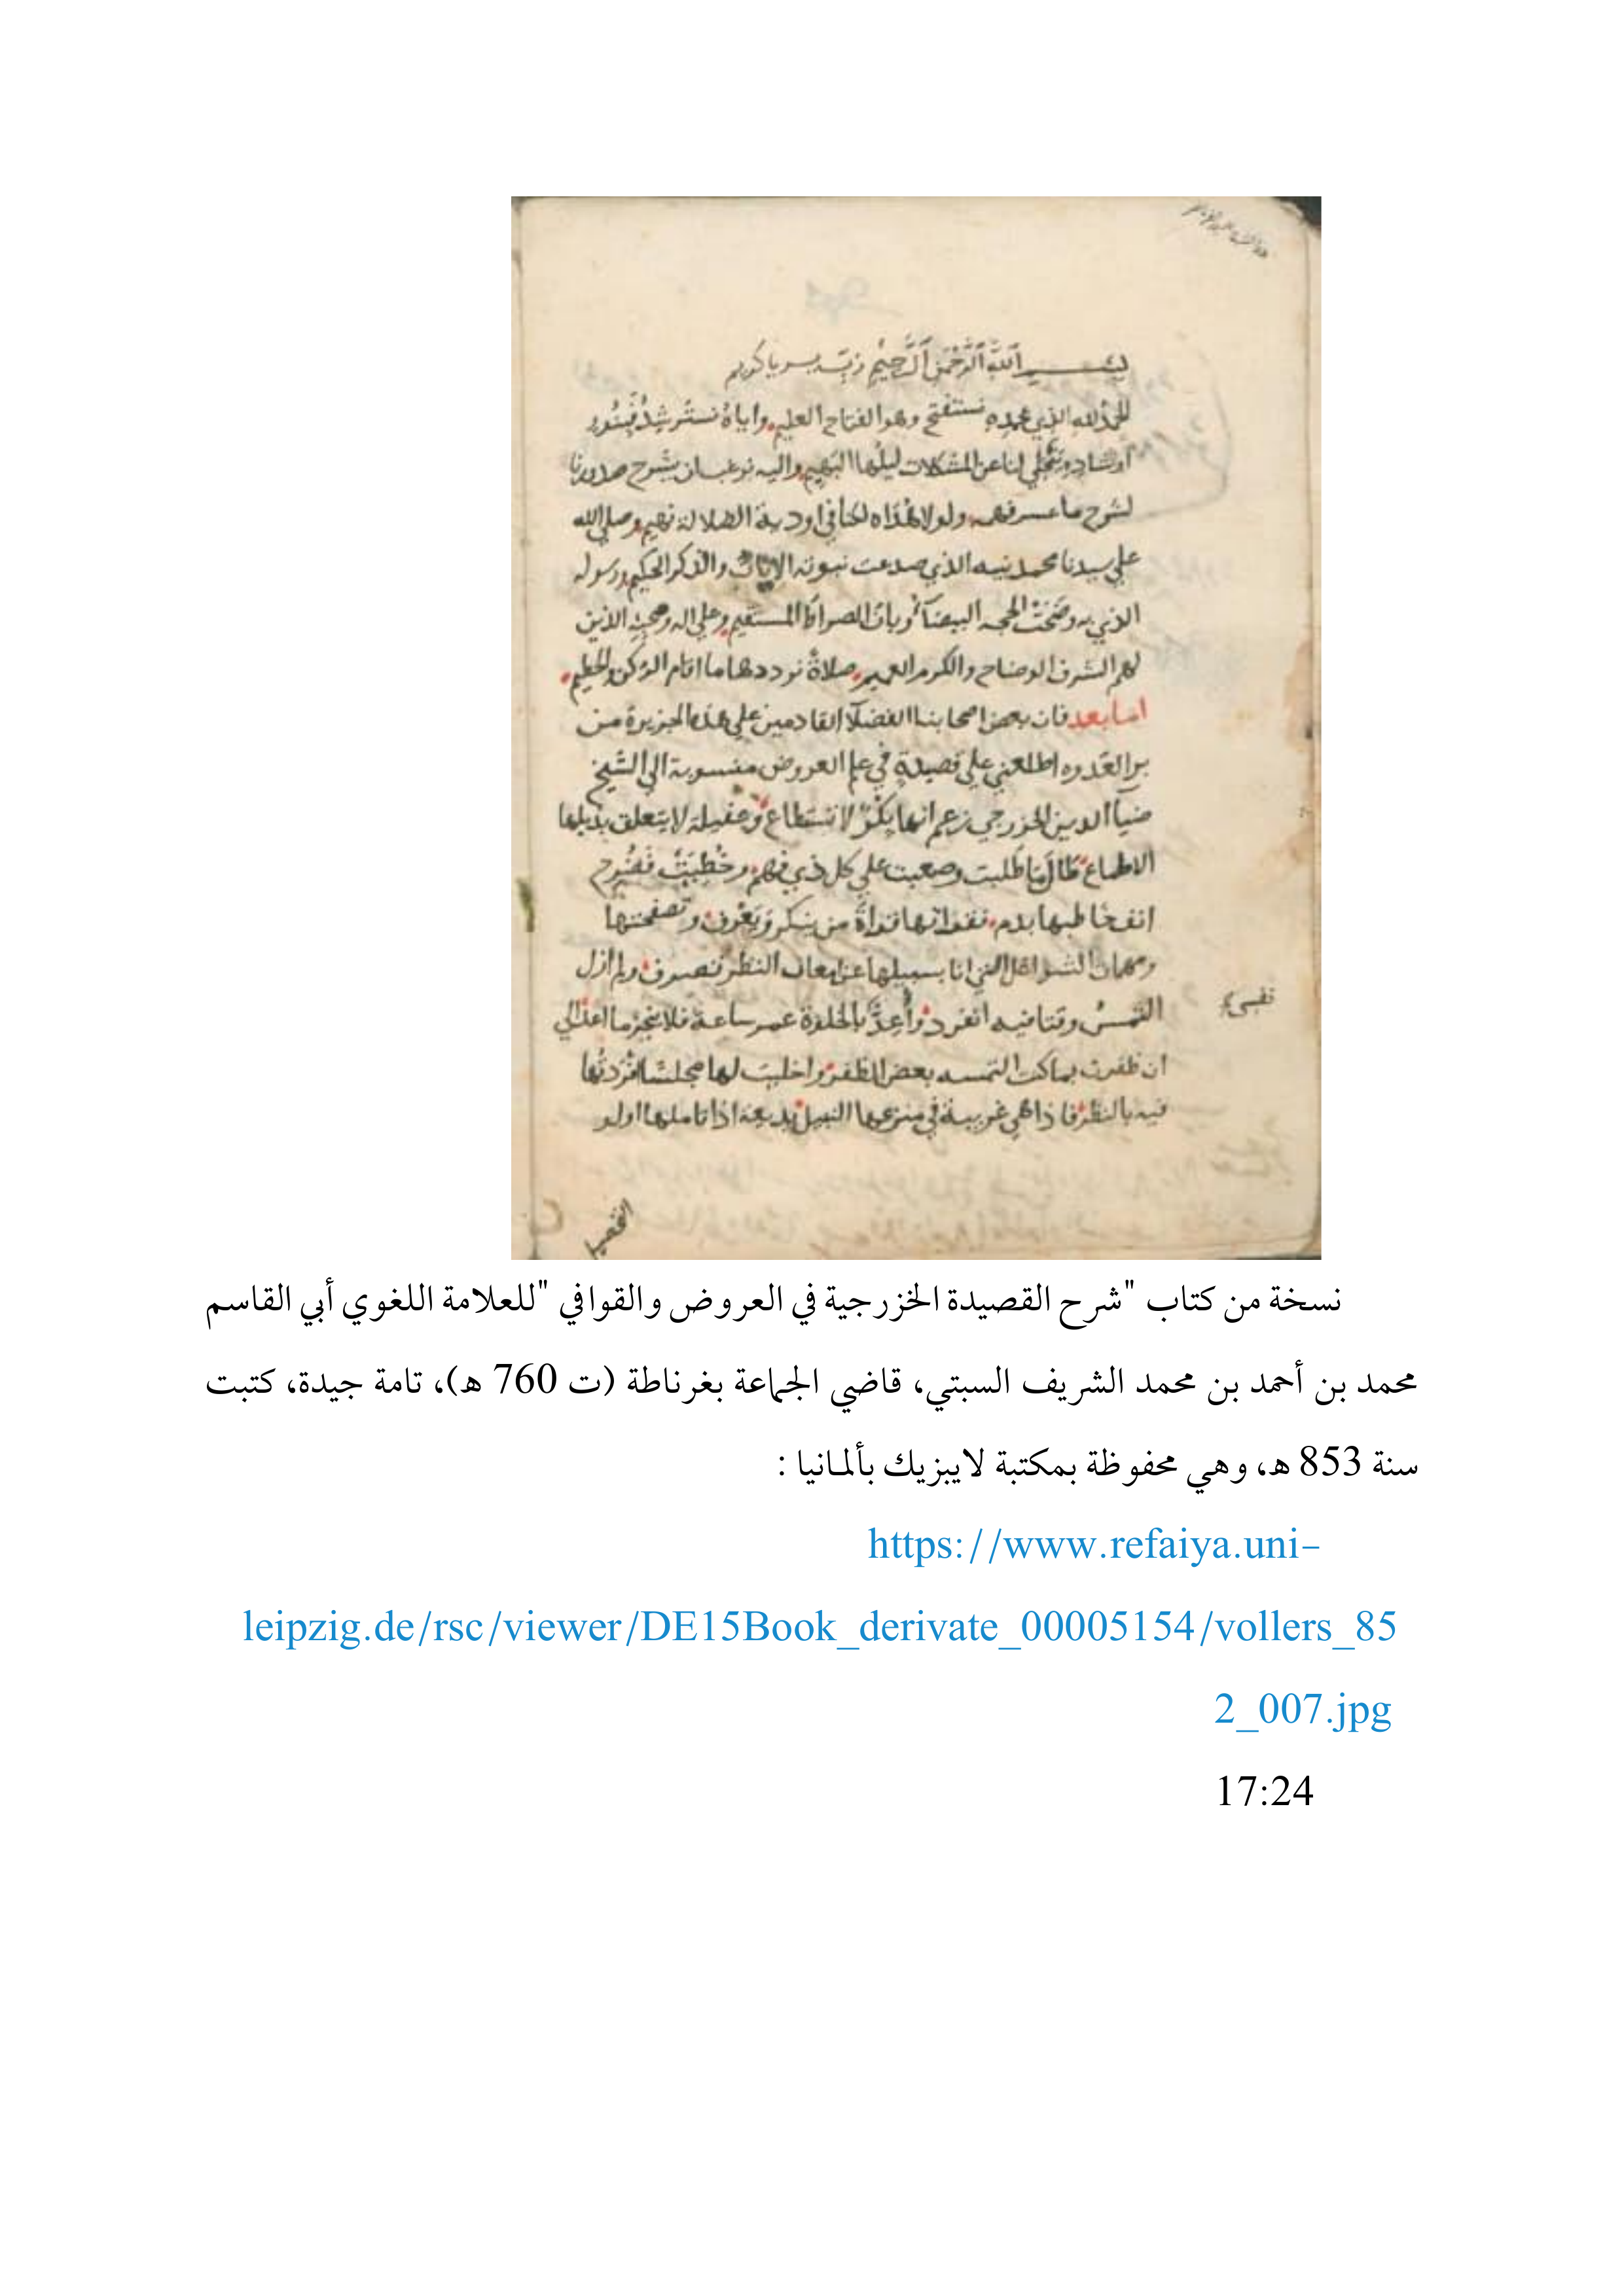 بسم الله الرحمن الرحيم رب يسر يا كريم
الحمد لله الذي بحمده نستفتح وهو الفتاح العليم واياه نسترشد فبنور
ارشاده ينجلي لنا عن المشكلات ليلها البهيم واليه نرغب ان يشرح صدورنا
لشرح ما عسر فهمه ولولا هداه لكنا في اودية الضلالة نهيم وصلى الله
علي سيدنا محمد نبيه الذي صدعت بنبوته الايات والذكر الحكيم ورسوله
الذي به وضحت المحجه البيضاء وبان الصراط المستقيم وعلي اله وصحبه الذين
لهم الشرف الوضاح والكرم العميم صلاة نرددها ما اقام الركن والحطيم
اما بعد فان بعض اصحابنا الفضلا القادمين علي هذه الجزيرة من
بر العدوه اطلعني علي قصيدة في علم العروض منسوبة الي الشيخ
ضيآ الدين الخزرجي زعم انها بكر لا تستطاع وعقيلة لا يتعلق بذيلها
الاطماع طال ما طلبت وصعبت علي كل ذي فهم وخطبت فضرح
انف خاطبها بدم فقراتها قراة من ينكر ويعرف وتصفحتها
ومهمات الشواغل التي انا بسبيلها عن امعان النظر تصرف ولم ازل
التمس وقتا فيه انفرد واعد بالخلوة عمر ساعة فلا ينجز ما اعد الي
نفسي
ان ظفرت بما كنت التمسه بعض الظفر واخليت لها مجلسا افردتها
فيه بالنظر فاذا هي غريبة في منزعها النبيل بديعة اذا تاملها اولو
نسخة من كتاب "شرح القصيدة الخزرجية في العروض والقوافي "للعلامة اللغوي أبي القاسم
محمد بن أحمد بن محمد الشريف السبتي، قاضي الجماعة بغرناطة (ت 760 هـ)، تامة جيدة، كتبت
سنة 853 هـ، وهي محفوظة بمكتبة لايبزيك بألمانيا :
https://www.refaiya.uni-
leipzig.de/rsc/viewer/DE15Book_derivate_00005154/vollers_85
2_007.jpg
17:24